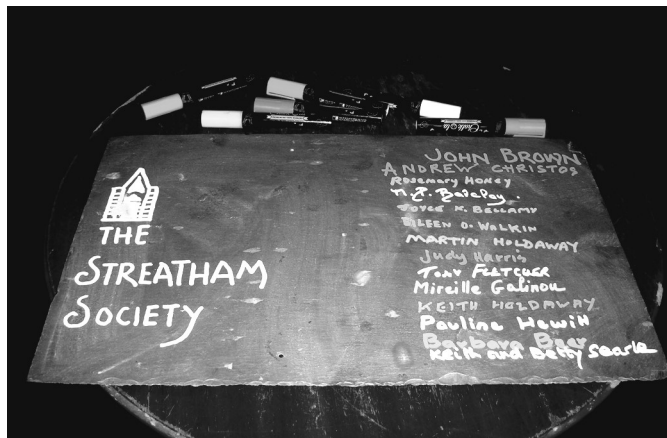 THE
STREATHAM
SOCIETY
JOHN BROWN
ANDREW CHRISTOS
Rosemary Honey
JOYCE K. BELLAMY
EILEEN O. WALKIN
MARTIN HOLDAWAY
Judy Harris
TONY FLETCHER
Mireille Galinou
KEITH HOLDAWAY
Pauline Hewitt
Barbara
Keith and Betty Searle